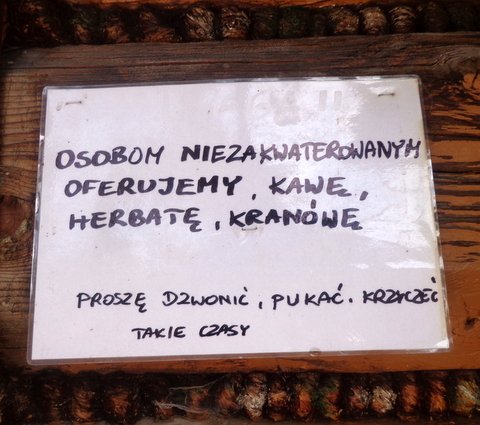 OSOBOM NIEZAKWATEROWANYM
OFERUJEMY, KAWĘ,
HERBATĘ, KRANÓWĘ
PROSZĘ DZWONIĆ, PUKAĆ. KRZYCZEĆ
TAKIE CZASY